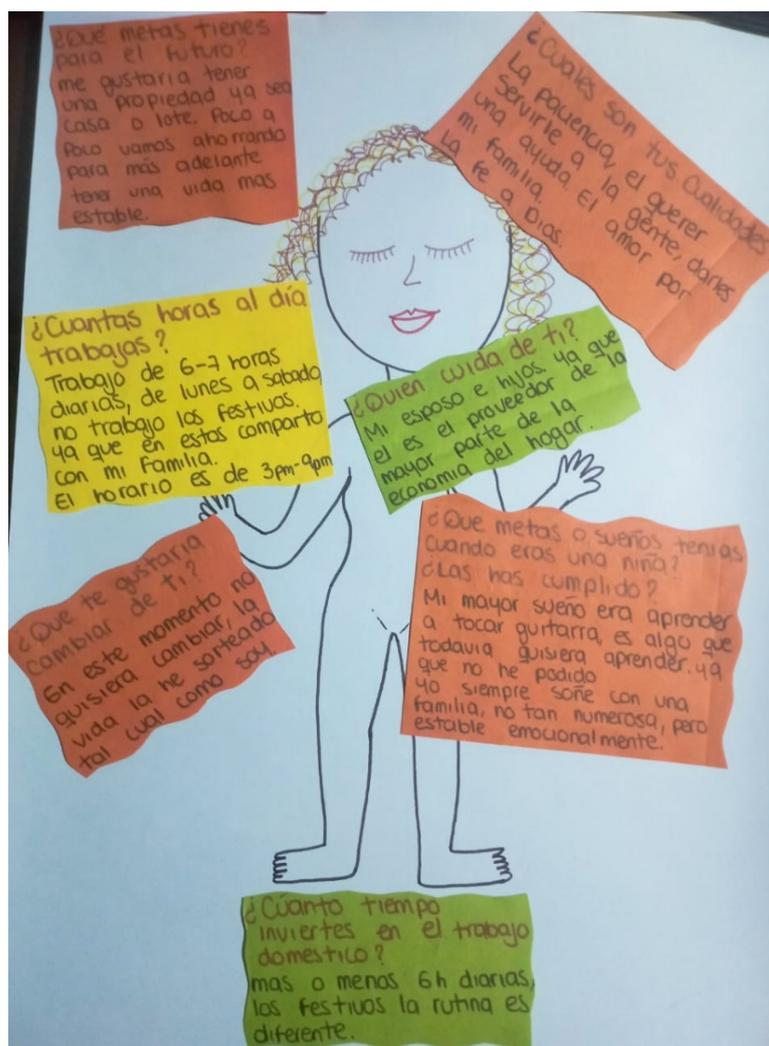 ¿Qué metas tienes
para el futuro?
me gustaria tener
una propiedad ya sea
casa o lote. Poco a
Poco vamos ahorrando
para más adelante
tener una vida mas
estable.
¿Cuales son tus cualidades
La paciencia, el querer
servirle a la gente, darles
una ayuda. El amor por
mi familia.
La fe a Dios.
¿Cuantas horas al día
trabajas?
Trabajo de 6-7 horas
diarias, de lunes a sabado,
no trabajo los festivos.
ya que en estos comparto
con mi Familia.
El horario es de 3pm-9pm
¿Quien cuida de ti?
Mi esposo e hijos. ya que
el es el proveedor de la
mayor parte de la
economia del hogar.
¿Que te gustaria
cambiar de ti?
En este momento no
quisiera cambiar, la
vida la he sorteado
tal cual como soy.
¿Que metas o sueños tenias
cuando eras una niña?
¿Las has cumplido?
Mi mayor sueño era aprender
a tocar guitarra, es algo que
todavia quisiera aprender. ya
que no he podido
yo siempre soñe con una
familia, no tan numerosa, pero
estable emocionalmente.
¿Cúanto tiempo
inviertes en el trabajo
domestico?
mas o menos 6h diarias,
los festivos la rutina es
diferente.